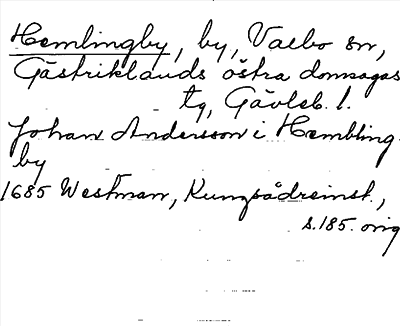 Hemlingby, by, Valbo sn,
Gästriklands östra domsagas
tg, Gävleb. l.
Johan Andersson i Hembling
by
1685 Westman, Kungsådreinst.,
s. 185. orig